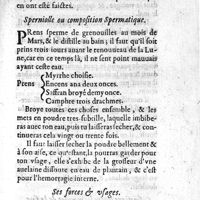 en ont esté faictes.
Sperniolle ou composition Spermatique.
PRens sperme de grenouilles au mois de
Mars, & le distille au bain; il faut qu'il soit
prins trois iours auant le renouueau de la Lu-
ne, car en ce temps là, il ne sent point mauuais
ayant ceste eau.
Myrrhe choisie.
Prens Encens ana deux onces.
Saffran broyé demy once.
Camphre trois drachmes.
Broye toutes ces choses ensemble, & les
mets en poudre tres-subtille, laquelle imbibe-
ras auec ton eau, puis tu laisseras secher, & con-
tinueras cela vingt ou trente fois.
Il faut laisser secher la poudre bellement &
à son aise, ce qu'estant, la pourras garder pour
ton vsage, elle s'exhibe de la grosseur d'vne
auelaine dissoute en eau de plantain, & c'est
pour l'hemorragie interne.
Ses forces & vsages.